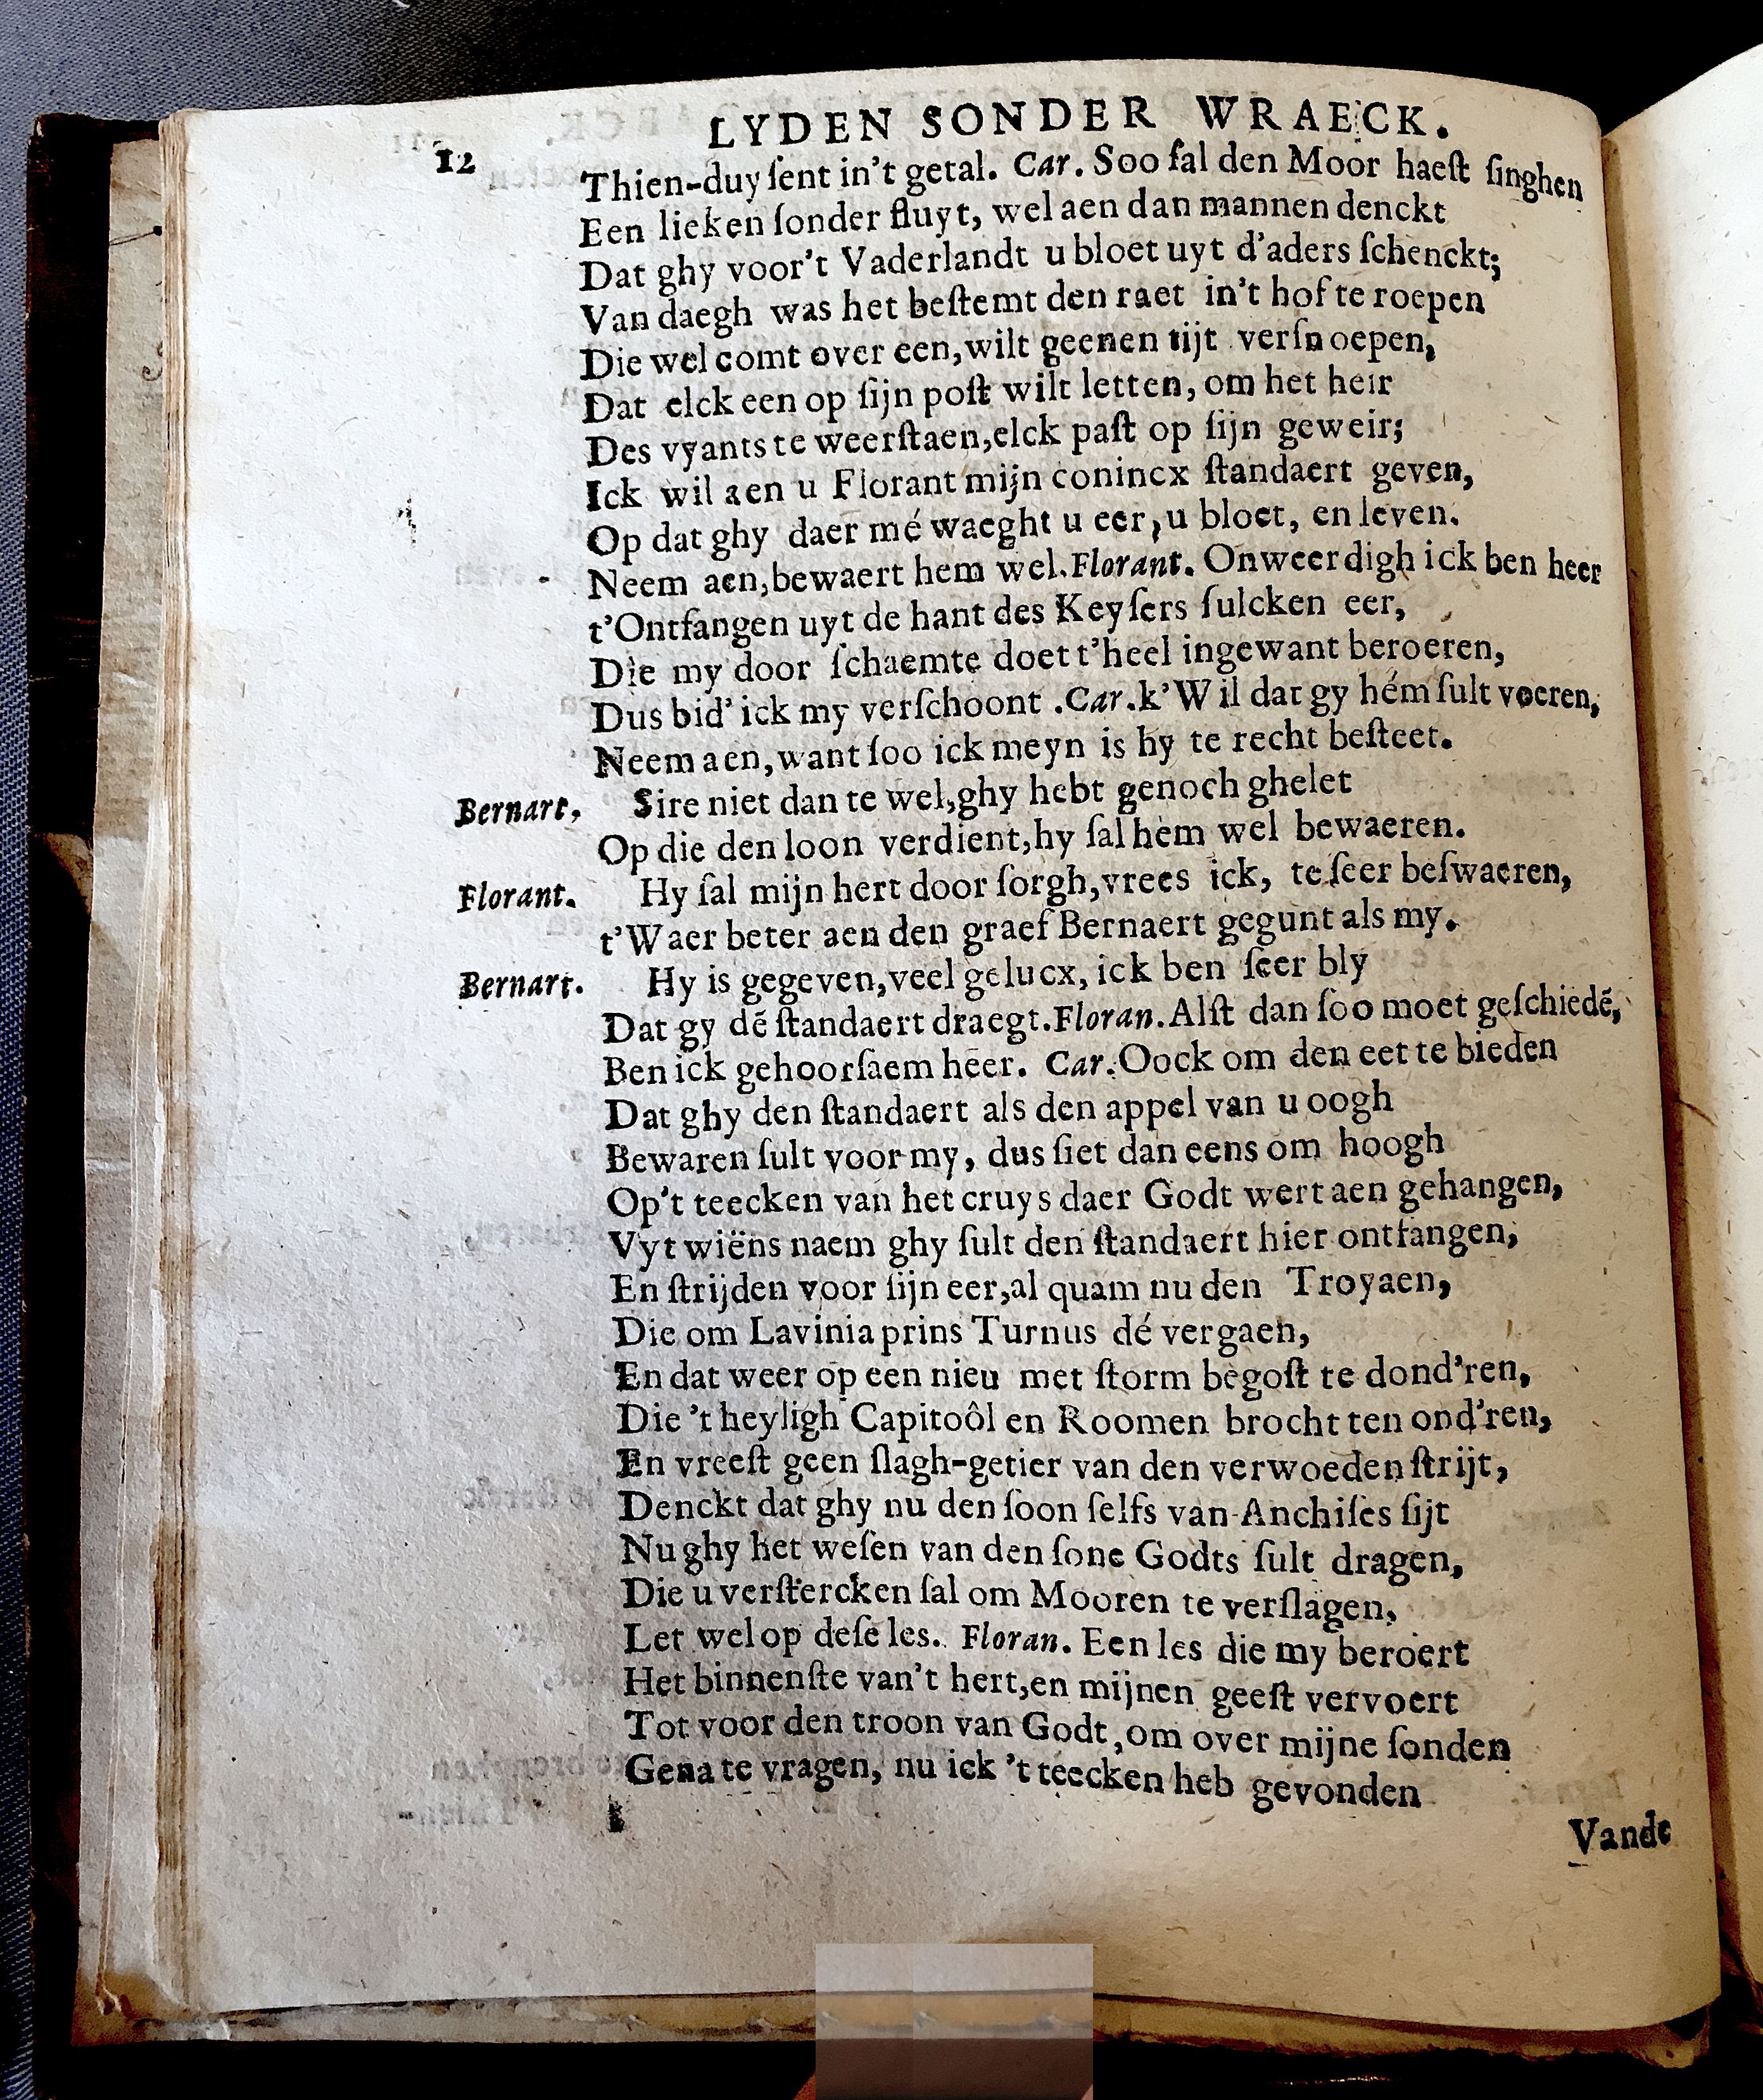 12 LYDEN SONDER WRAECK.
Thien-duyſent in't getal. Car. Soo ſal den Moor haeſt ſinghen
Een lieken ſonder fluyt, wel aen dan mannen denckt
Dat ghy voor't Vaderlandt u bloet uyt d'aders ſchenckt;
Van daegh was het beſtemt den raet in't hof te roepen
Die wel comt over een, wilt geenen tijt verſnoepen,
Dat elck een op ſijn poſt wilt letten, om het heir
Des vyants te weerſtaen, elck paſt op ſijn geweir;
Ick wil aen u Florant mijn conincx ſtandaert geven,
Op dat ghy daer mé waeght u eer, u bloet, en leven.
Neem aen, bewaert hem wel. Florant. Onweerdigh ick ben heer
t'Ontfangen uyt de hant des Keyſers ſulcken eer,
Die my door ſchaemte doet t'heel ingewant beroeren,
Dus bid' ick my verſchoont. Car. k'Wil dat gy hém ſult voeren,
Neem aen, want ſoo ick meyn is hy te recht beſteet.
Bernart, Sire niet dan te wel, ghy hebt genoch ghelet
Op die den loon verdient, hy ſal hem wel bewaeren.
Florant. Hy ſal mijn hert door ſorgh, vrees ick, te ſeer beſwaeren,
t'Waer beter aen den graef Bernaert gegunt als my.
Bernart. Hy is gegeven, veel gelucx, ick ben ſeer bly
Dat gy dē ſtandaert draegt. Floran. Alſt dan ſoo moet geſchiedē,
Ben ick gehoorſaem heer. Car. Oock om den eet te bieden
Dat ghy den ſtandaert als den appel van u oogh
Bewaren ſult voor my, dus ſiet dan eens om hoogh
Op't teecken van het cruys daer Godt wert aen gehangen,
Vyt wiëns naem ghy ſult den ſtandaert hier ontfangen,
En ſtrijden voor ſijn eer, al quam nu den Troyaen,
Die om Lavinia prins Turnus dé vergaen,
En dat weer op een nieu met ſtorm begoſt te dond'ren,
Die 't heyligh Capitoôl en Roomen brocht ten ond'ren,
En vreeſt geen ſlagh-getier van den verwoeden ſtrijt,
Denckt dat ghy nu den ſoon ſelfs van Anchiſes ſijt
Nu ghy het weſen van den ſone Godts ſult dragen,
Die u verſtercken ſal om Mooren te verſlagen,
Let wel op deſe les. Floran. Een les die my beroert
Het binnenſte van't hert, en mijnen geeſt vervoert
Tot voor den troon van Godt, om over mijne ſonden
Gena te vragen, nu ick 't teecken heb gevonden
Vande